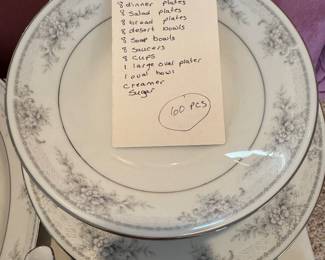 8 dinner plates
8 Salad plates
8 bread plates
8 desert bowls
8 Soap bowls
8 Saucers
8 Cups
1 large oval plater
1 oval bowl
Creamer
Sugar
60 PCS